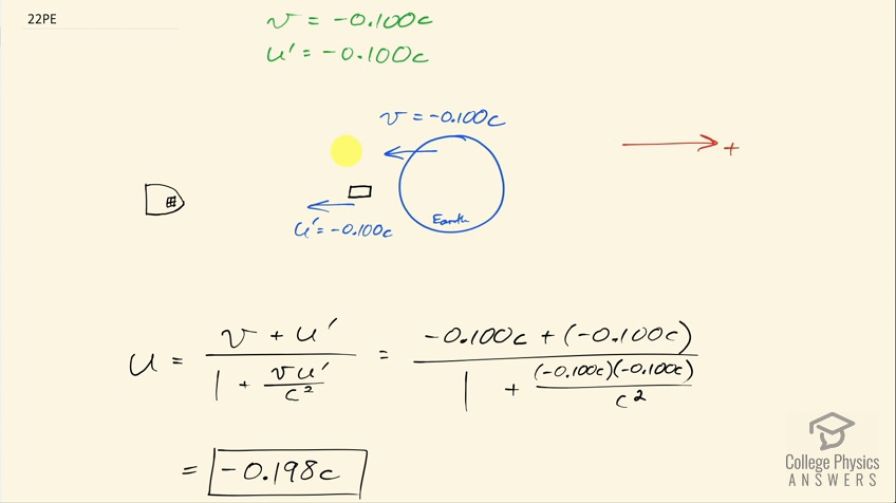 22PE
v = -0.100c
u' = -0.100c
v = -0.100c
+
Earth
u' = -0.100c
u = (v + u') / (1 + vu'/c²) = (-0.100c + (-0.100c)) / (1 + (-0.100c)(-0.100c)/c²)
= -0.198c
College Physics
ANSWERS